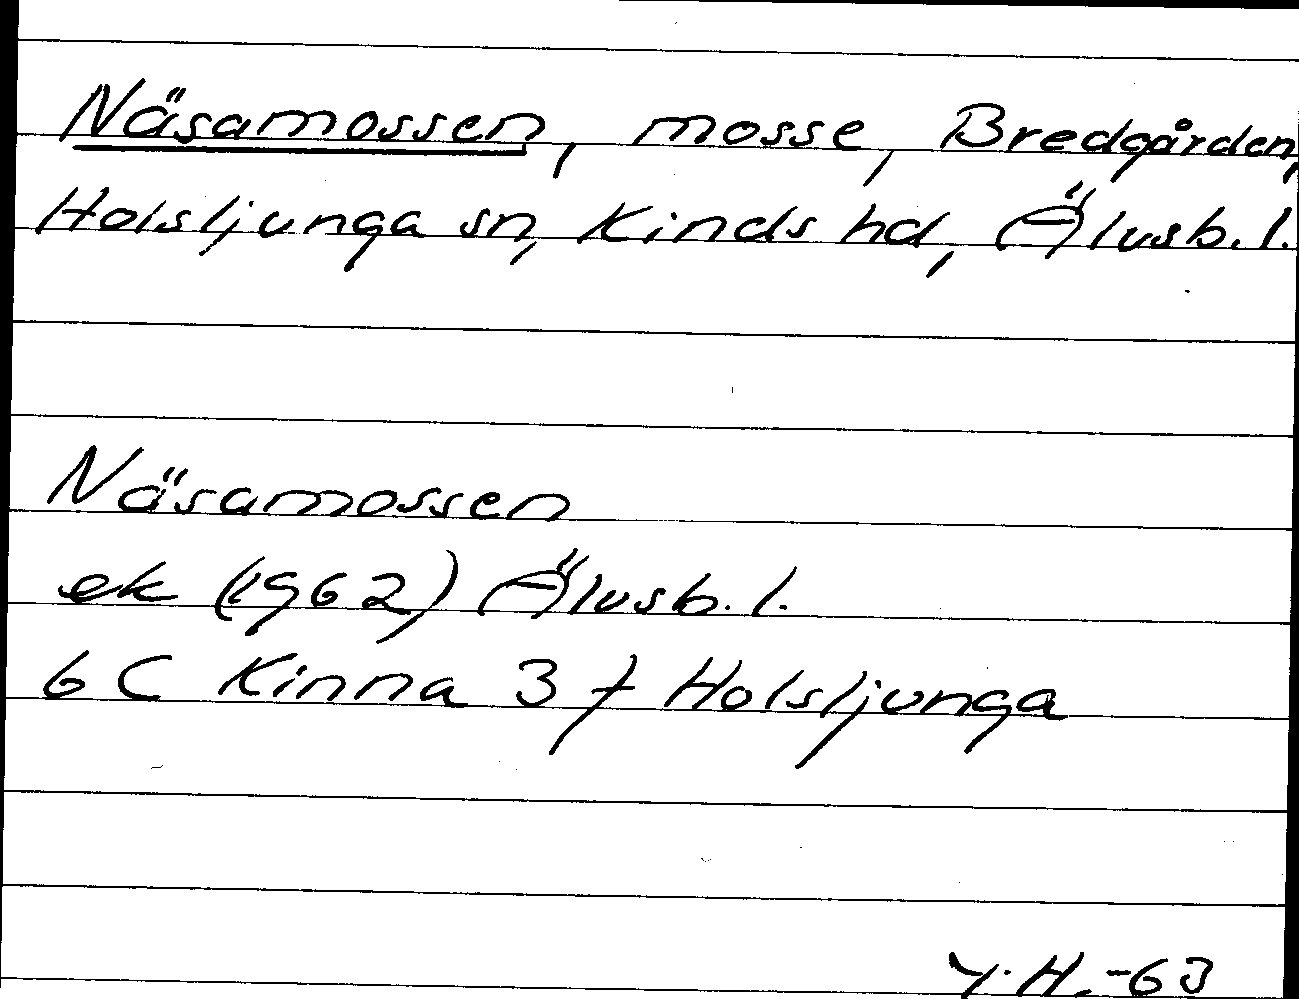 Näsamossen, mosse, Bredgården,
Holsljunga sn, Kinds hd, Älvsb. l.
Näsamossen
ek (1962) Älvsb. l.
6 C Kinna 3 f Holsljunga
Y. H. -63